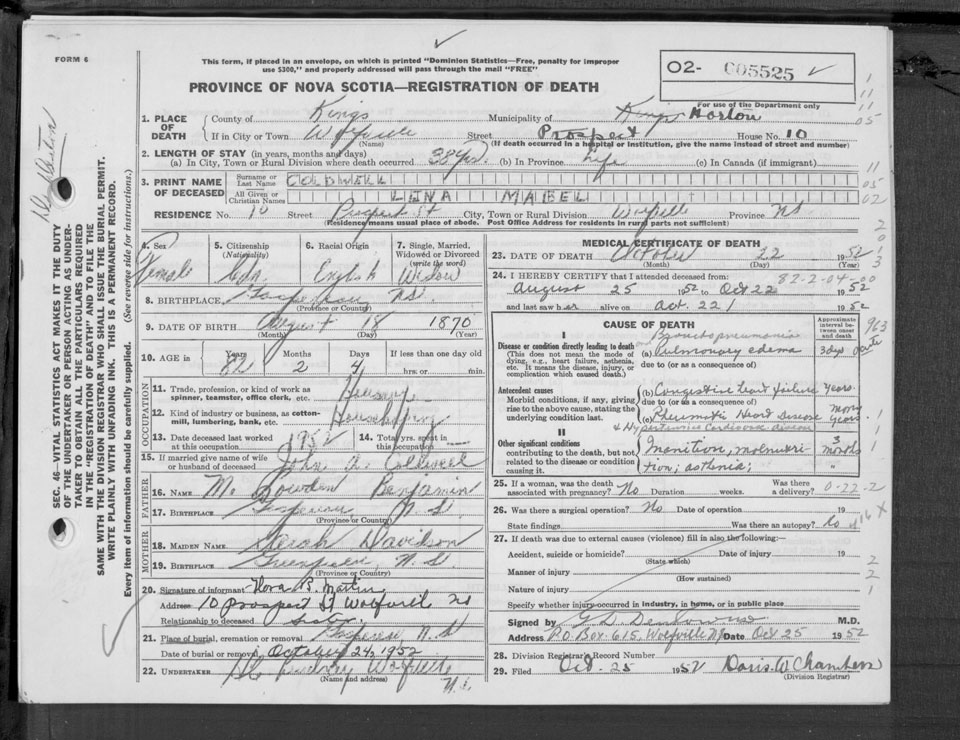 FORM 6
This form, if placed in an envelope, on which is printed "Dominion Statistics—Free, penalty for improper
use $300," and properly addressed will pass through the mail "FREE"
PROVINCE OF NOVA SCOTIA—REGISTRATION OF DEATH
O2- 005525
For use of the Department only
1. PLACE OF DEATH
County of Kings Municipality of Kings Horton
If in City or Town Street Prospect House No. 10
(Name) (If death occurred in a hospital or institution, give the name instead of street and number)
2. LENGTH OF STAY (in years, months and days)
(a) In City, Town or Rural Division where death occurred 38 yrs. (b) In Province Life (c) In Canada (if immigrant)
3. PRINT NAME OF DECEASED
Surname or Last Name COLDWELL
All Given or Christian Names LENA MABEL
RESIDENCE No. 10 Street Prospect St City, Town or Rural Division Wolfville Province NS
(Residence means usual place of abode. Post Office Address for residents in rural parts not sufficient)
4. Sex Female
5. Citizenship (Nationality) Cdn.
6. Racial Origin English
7. Single, Married, Widowed or Divorced (write the word) Widow
8. BIRTHPLACE Gaspereau NS.
(Province or Country)
9. DATE OF BIRTH August 18 1870
(Month) (Day) (Year)
10. AGE in Years 82 Months 2 Days 4 If less than one day old hrs. or min.
OCCUPATION
11. Trade, profession, or kind of work as spinner, teamster, office clerk, etc.
12. Kind of industry or business, as cotton-mill, lumbering, bank, etc. Housekeeping
13. Date deceased last worked at this occupation 1952
14. Total yrs. spent in this occupation —
15. If married give name of wife or husband of deceased John A. Coldwell
FATHER
16. NAME M. Lowden Benjamin
17. BIRTHPLACE Gaspereau, N.S.
(Province or Country)
MOTHER
18. MAIDEN NAME Sarah Davidson
19. BIRTHPLACE N.S.
(Province or Country)
20. Signature of informant Flora B. Martin
Address 10 Prospect St Wolfvill NS
Relationship to deceased sister
21. Place of burial, cremation or removal Gaspereau N.S
Date of burial or removal October 24, 1952
22. UNDERTAKER Wolfville
(Name and address)
N.S.
MEDICAL CERTIFICATE OF DEATH
23. DATE OF DEATH October 22 1952
(Month) (Day) (Year)
24. I HEREBY CERTIFY that I attended deceased from: 82-2-04-00
August 25 1952 to Oct 22 1952
and last saw her alive on Oct. 22 1952
CAUSE OF DEATH
Approximate interval between onset and death
I
Disease or condition directly leading to death
(This does not mean the mode of dying, e.g., heart failure, asthenia, etc. It means the disease, injury, or complication which caused death.)
Bronchopneumonia
(a) Pulmonary edema 3 days
due to (or as a consequence of)
Antecedent causes
Morbid conditions, if any, giving rise to the above cause, stating the underlying condition last.
(b) Congestive heart failure years.
due to (or as a consequence of)
(c) Rheumatic Heart Disease many years.
& Hypertensive Cardiovasc disease
II
Other significant conditions
contributing to the death, but not related to the disease or condition causing it.
Inanition, malnutri- 3 months
tion; asthenia; "
25. If a woman, was the death associated with pregnancy? No Duration weeks. Was there a delivery? 0-22-2
26. Was there a surgical operation? No Date of operation 19
State findings Was there an autopsy? No
27. If death was due to external causes (violence) fill in also the following:
Accident, suicide or homicide? Date of injury 19
(State which)
Manner of injury
(How sustained)
Nature of injury
Specify whether injury occurred in industry, in home, or in public place
Signed by M.D.
Address P.O. Box 615, Wolfville NS Date Oct 25 1952
28. Division Registrar's Record Number
29. Filed Oct. 25 1952 Doris W Chambers
(Division Registrar)
SEC. 46—VITAL STATISTICS ACT MAKES IT THE DUTY
OF THE UNDERTAKER OR PERSON ACTING AS UNDER-
TAKER TO OBTAIN ALL THE PARTICULARS REQUIRED
IN THE "REGISTRATION OF DEATH" AND TO FILE THE
SAME WITH THE DIVISION REGISTRAR WHO SHALL ISSUE THE BURIAL PERMIT.
WRITE PLAINLY WITH UNFADING INK. THIS IS A PERMANENT RECORD.
Every item of information should be carefully supplied. (See reverse side for instructions.)